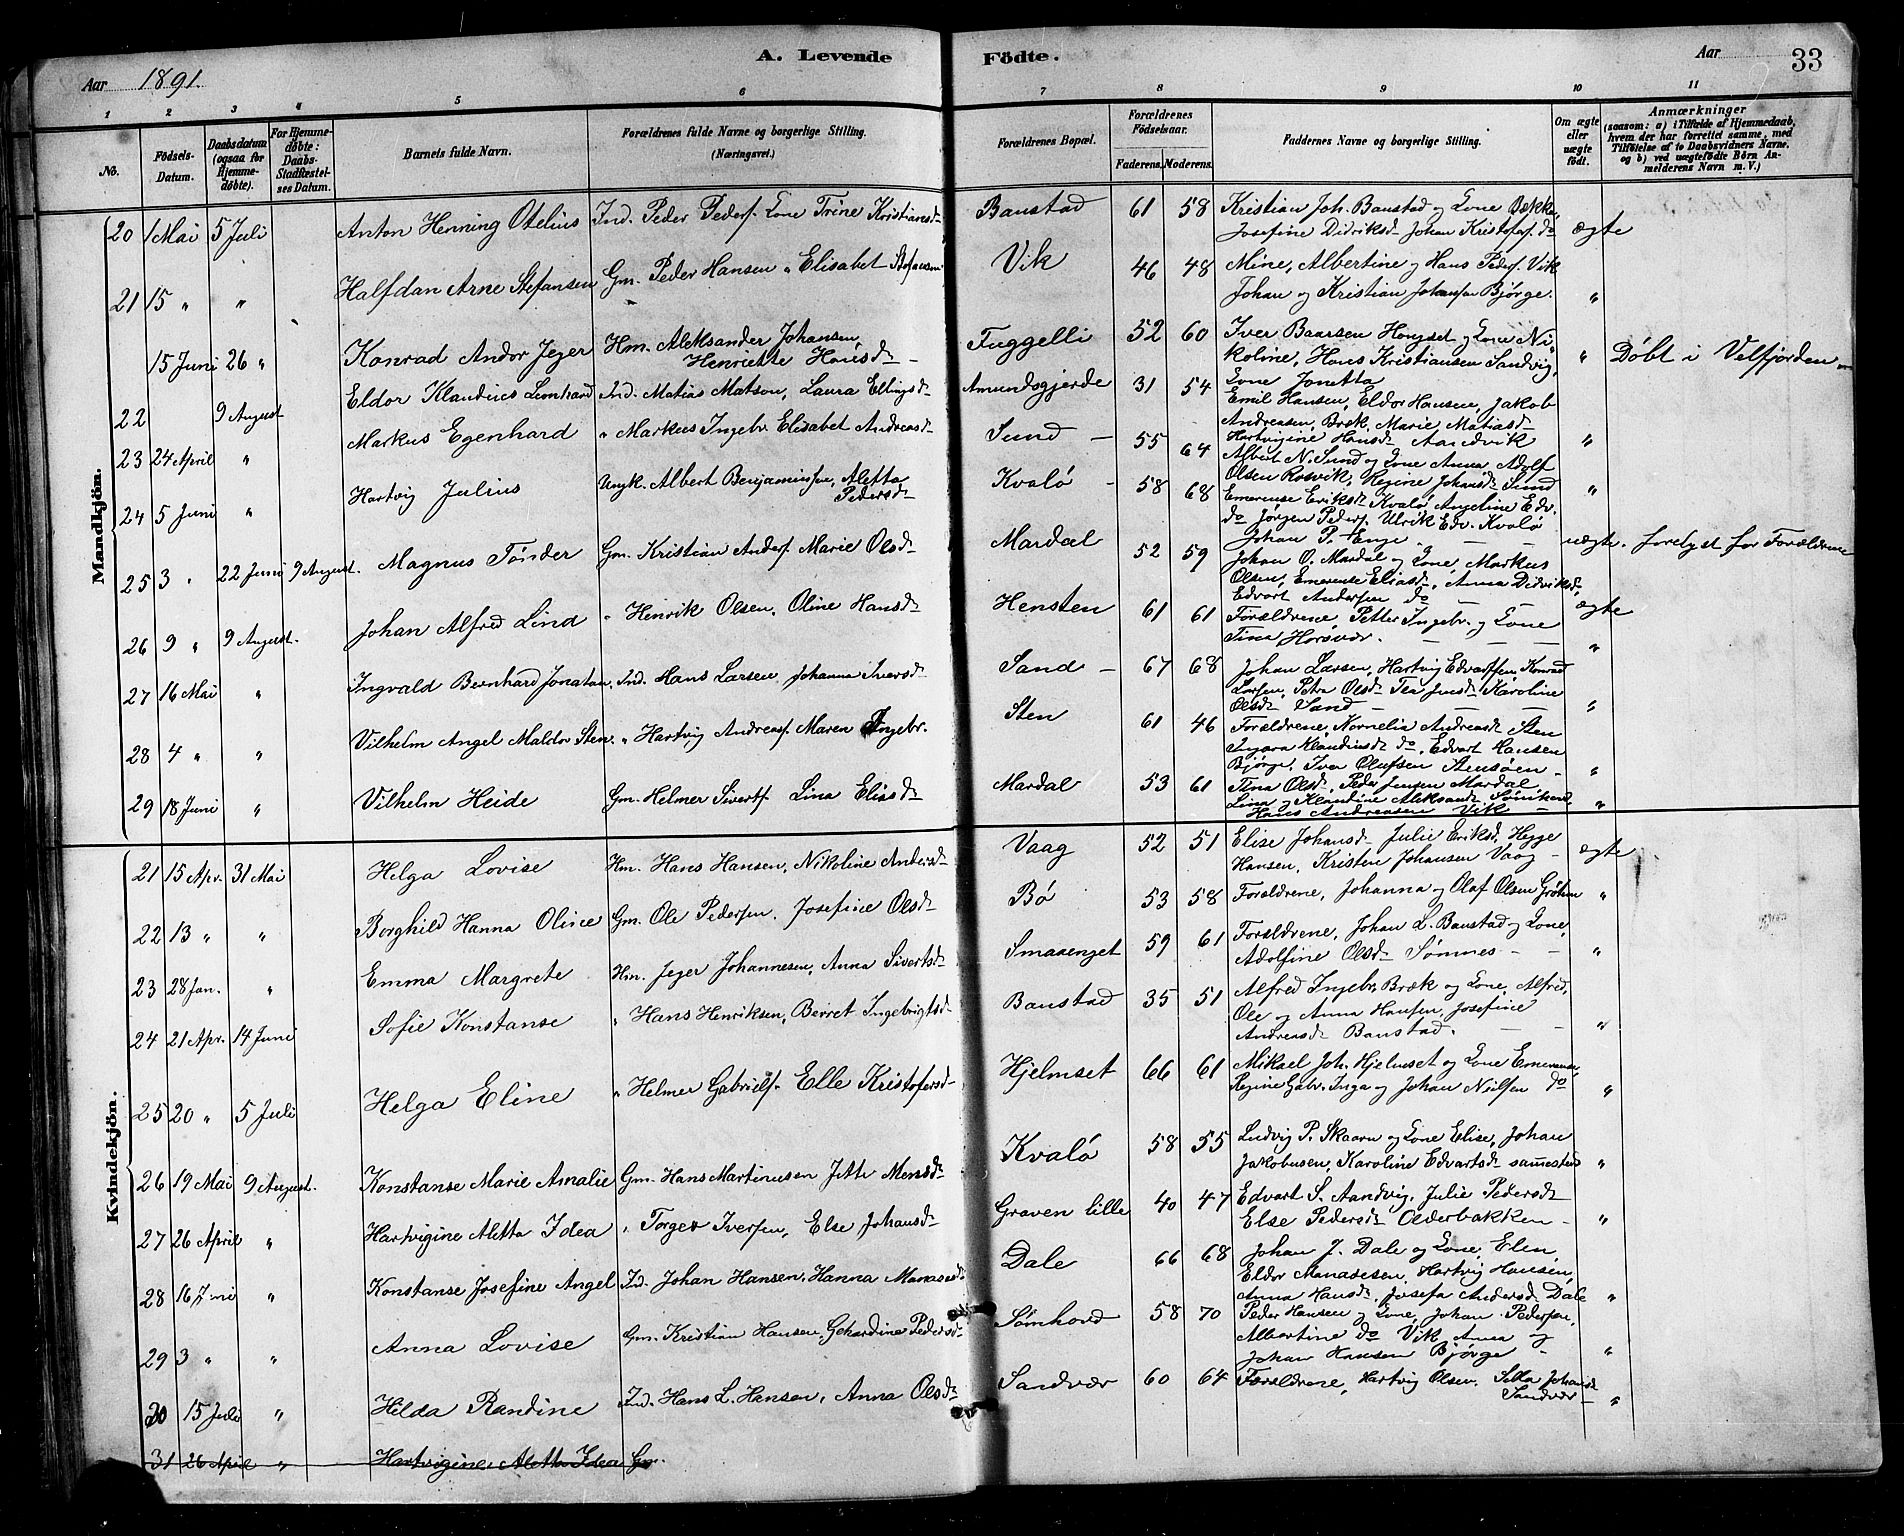 A. Levende Födte.
Aar 1891. Aar 33
1 2 3 4 5 6 7 8 9 10 11
No. Födsels-Datum. Daabsdatum (ogsaa for Hjemme-døbte). For Hjemme-døbte: Daabs-Stadfæstel-ses Datum. Barnets fulde Navn. Forældrenes fulde Navne og borgerlige Stilling. (Næringsvei.) Forældrenes Bopæl. Forældrenes Födselsaar. Faderens. Moderens. Faddernes Navne og borgerlige Stilling. Om ægte eller uægte født. Anmærkninger (saasom: a) i Tilfælde af Hjemmedaab, hvem der har forrettet samme, med Tilföielse af to Daabsvidners Navne. og b) ved uægtefödte Børn An-melderens Navn m. V.)
Mandkjön.
20 1 Mai 5 Juli Anton Henning Otelius Ind. Peder Peders. Kone Trine Kristiansd. Banstad 61 58 Kristian Joh. Banstad og Kone Bække,
Josefine Didriksd. Johan Kristofers. do ægte
21 15 " " Halfdan Arne Stefansen Gm. Peder Hansen, Elisabet Stefansen Vik 46 48 Mine, Albertine og Hans Peders. Vik
Johan og Kristian Johansen Bjørge. "
15 Juni 26 " Konrad Andor Jeger Hm. Aleksander Johansen, Henriette Hansd. Fuggelli 52 60 Iver Baarsen Hongset og Kone Ni-
koline, Hans Kristiansen Sandvig, " Døbt i Velfjorden
Kone Jonetta
22 9 August Eldor Klaudius Lenhard Ind. Matias Matson, Laura Ellingsd. Amundsgjerde 31 54 Emil Hansen, Eldor Hansen, Jakob
Andreasen, Bræk, Marie Matiasd.
23 24 April " Markus Egenhard " Markus Ingebr. Elisabet Andreasd. Sund 55 64 Hartvigine Hansd. Aandvik "
Albert N. Sund og Kone Anna, Adolf
Olsen Rosvik, Regine Johansd. Sund
24 5 Juni " Hartvig Julius Ungk. Albert Benjaminsen, Aletta Pedersd. Kvalø 58 68 Emerense Eriksd. Kvalø Angeline Edv. "
do Jørgen Peders. Ulrik Edv. Kvalø
Johan P. Enge uægte. forelyst for Forældrene
25 3 " 22 Juni 9 August. Magnus Tønder Gm. Kristian Anders. Marie Olsd. Mardal 52 59 Johan O. Mardal og Kone, Markus
Olsen, Emerense Eliasd., Anna Didriksd.,
Edvart Andersen do ægte
26 9 " 9 August. Johan Alfred Lind " Henrik Olsen, Oline Hansd. Hensten 61 61 Forældrene, Petter Ingebr. og Kone
Tina Horsvær. "
27 16 Mai " Ingvald Bernhard Jonatan Ind. Hans Larsen, Johanna Iversd. Sand 67 68 Johan Larsen, Hartvig Edvartsen, Konrad
Larsen, Petra Olsd. Tea Jensd. Karoline
Olsd. Sand "
28 4 " " Vilhelm Angel Maldor Sten " Hartvig Andreas. Maren Ingebr. Sten 61 46 Forældrene, Kornelia Andreasd. Sten
Ingara Klaudiusd. do, Edvart Hansen
Bjørge, Iver Olufsen "
29 18 Juni " Vilhelm Heide Gm. Helmer Siverts. Lina Eliasd. Mardal 53 61 Tina Olsd., Peder Jensen Mardal,
Lina og Klaudine Aleksand.
Hans Andreasen Vik "
Kvindekjön.
21 15 Apr. 31 Mai Helga Lovise Hm. Hans Hansen, Nikoline Andersd. Vaag 52 51 Elise Johansd. Julie Eriksd. Hegge
Hansen, Kristen Johansen Vaag ægte
22 13 " " Borghild Hanna Oline Gm. Ole Pedersen, Josefine Olsd. Bø 53 58 Forældrene, Johanna og Olaf Olsen "
23 28 Jan. " Emma Margrete Hm. Jeger Johannesen, Anna Sivertsd. Smaaenget 59 61 Forældrene, Johan L. Banstad og Kone,
Adolfine Olsd. Sømnes "
24 21 Apr. 14 Juni Sofie Konstanse " Hans Henriksen, Berret Ingebrigtsd. Banstad 35 51 Alfred Ingebr. Bræk og Kone, Alfred,
Ole og Anna Hansen, Josefine
Andreasd. Banstad. "
25 20 " 5 Juli Helga Eline " Helmer Gabriels. Elle Kristofersd. Hjelmset 66 61 Mikael Joh. Hjelmset og Kone Emerense,
Regine Gabr. Inga og Johan Nilsen do "
26 19 Mai 9 August. Konstanse Marie Amalie Gm. Hans Martinusen Jette Mensd. Kvalø 58 55 Ludvig P. Skaaren og Kone Elise, Johan
Jakobusen, Karoline Edvartsd. samesteds "
27 26 April " Hartvigine Aletta Idea " Torger Iversen, Else Johansd. Graven lille 40 47 Edvart S. Aandvig, Julie Pedersd.
Else Pedersd. Olderbakken "
28 16 Juni " Konstanse Josefine Angel Id. Johan Hansen, Hanna Manasesd. Dale 66 68 Johan J. Dale og Kone, Elen,
Eldor Manasesen, Hartvig Hansen,
Anna Hansd., Josefa Andersd. Dale "
29 3 " " Anna Lovise Gm. Kristian Hansen, Gehardine Pedersd. Sømhovd 58 70 Peder Hansen og Kone, Johan Pedersen,
Albertine do Vik Anna og
Johan Hansen Bjørge "
30 15 Juli " Hilda Randine Ind. Hans L. Hansen, Anna Olsd. Sandvær 60 64 Forældrene, Hartvig Olsen, Silla Johansd.
Sandvær "
31 26 April " Hartvigine Aletta Idea Gm.